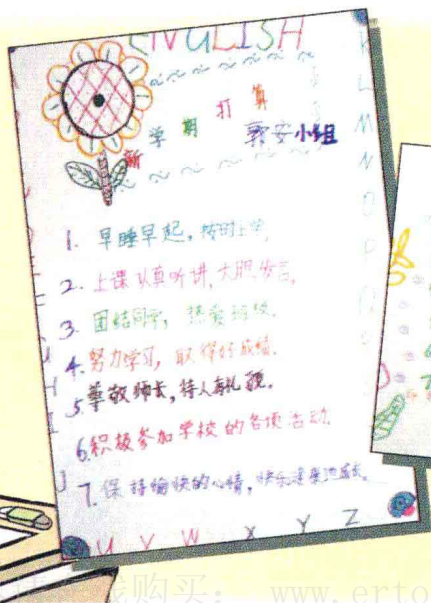 ENGLISH
新学期打算
郭安小组
1. 早睡早起,按时上学,
2. 上课认真听讲,大胆发言,
3. 团结同学,热爱班级.
4. 努力学习,取得好成绩.
5. 尊敬师长,待人有礼貌.
6. 积极参加学校的各项活动.
7. 保持愉快的心情,快乐健康地成长.
K
L
M
N
O
P
Q
U V W X Y Z
购买: www.erto